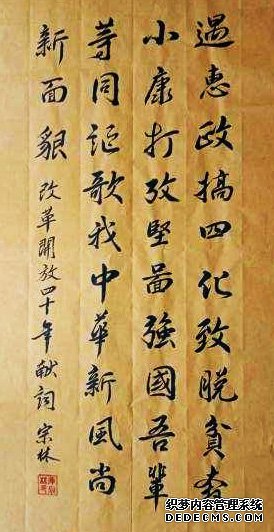 遇惠政搞四化致脱貧奔
小康打攻堅啚強國吾輩
等同讴歌我中華新風尚
新面貌 改革開放四十年献詞 宗林
织梦内容管理系统
DEDECMS.COM